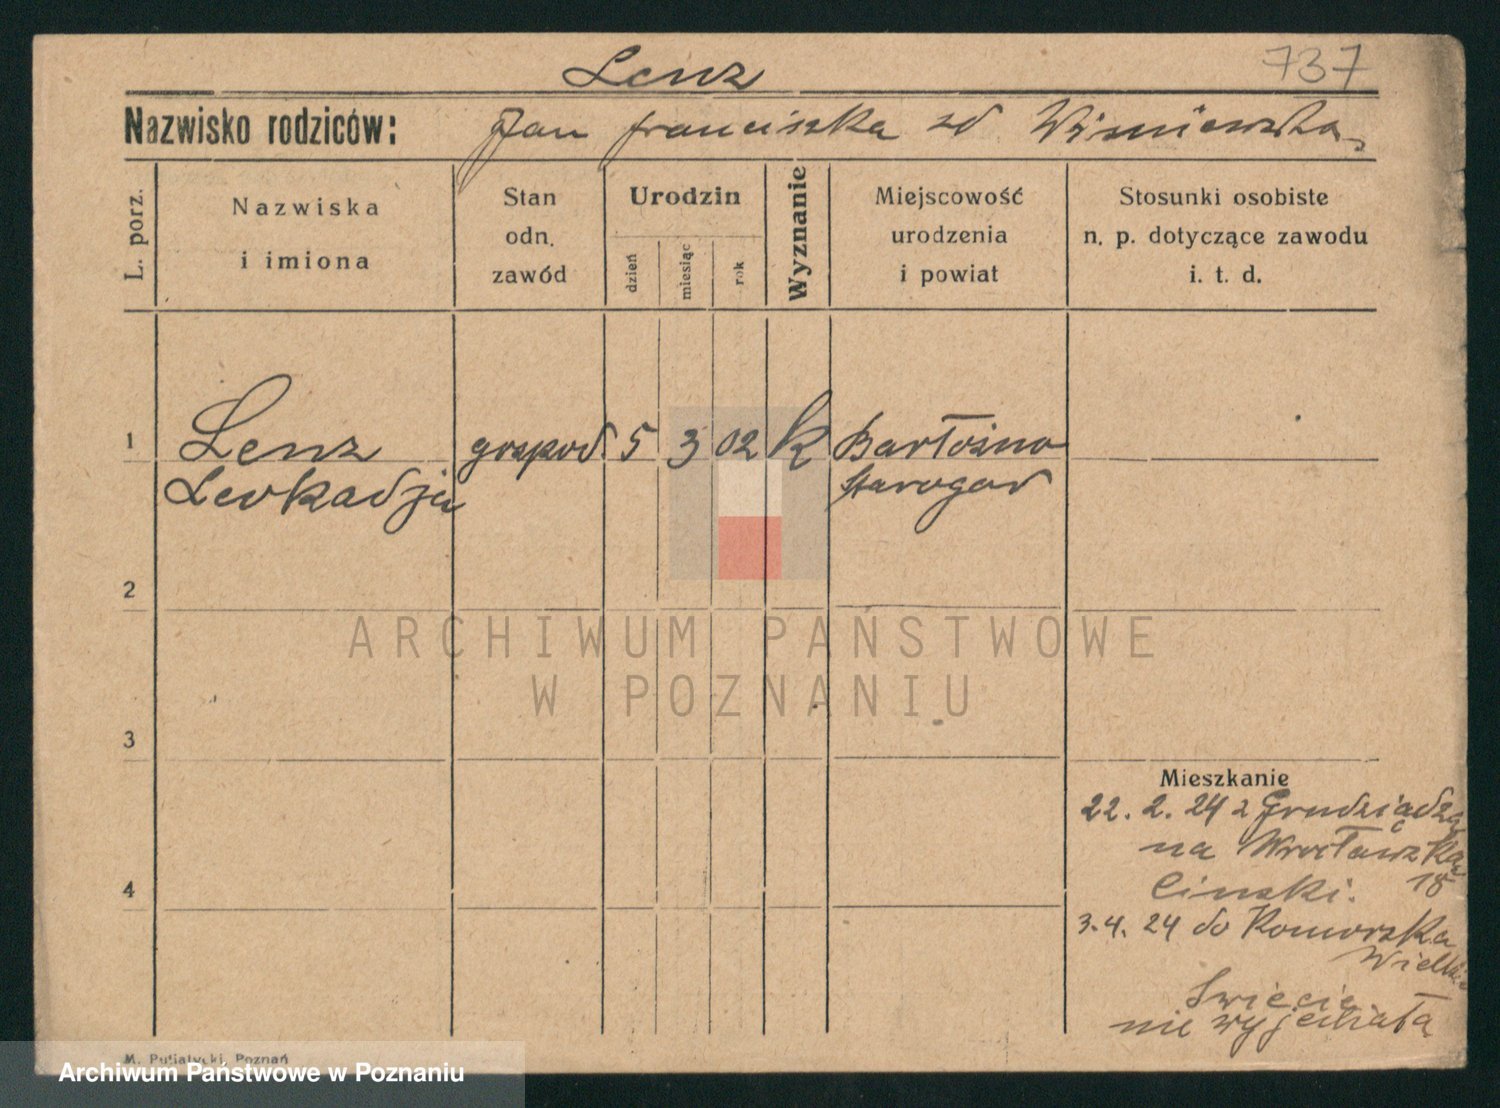 Lenz 737
Nazwisko rodziców: Jan Franciszka zd Wiśniewska
L. porz.
Nazwiska
i imiona
Stan
odn.
zawód
Urodzin
dzień
miesiąc
rok
Wyznanie
Miejscowość
urodzenia
i powiat
Stosunki osobiste
n. p. dotyczące zawodu
i. t. d.
1 Lenz gospod 5 3 02 k Bartoszno
Leokadja Starogard
2
3
4
Mieszkanie
22. 2. 24 z Grudziądza
na Wrocławską
18
3. 4. 24 do Komorska
Wielkie
Świecie
nie wyjechała
M. Putiatycki, Poznań
ARCHIWUM PAŃSTWOWE
W POZNANIU
Archiwum Państwowe w Poznaniu